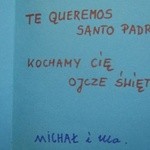 TE QUEREMOS
SANTO PADR
KOCHAMY CIĘ
OJCZE ŚWIĘT
MICHAŁ i